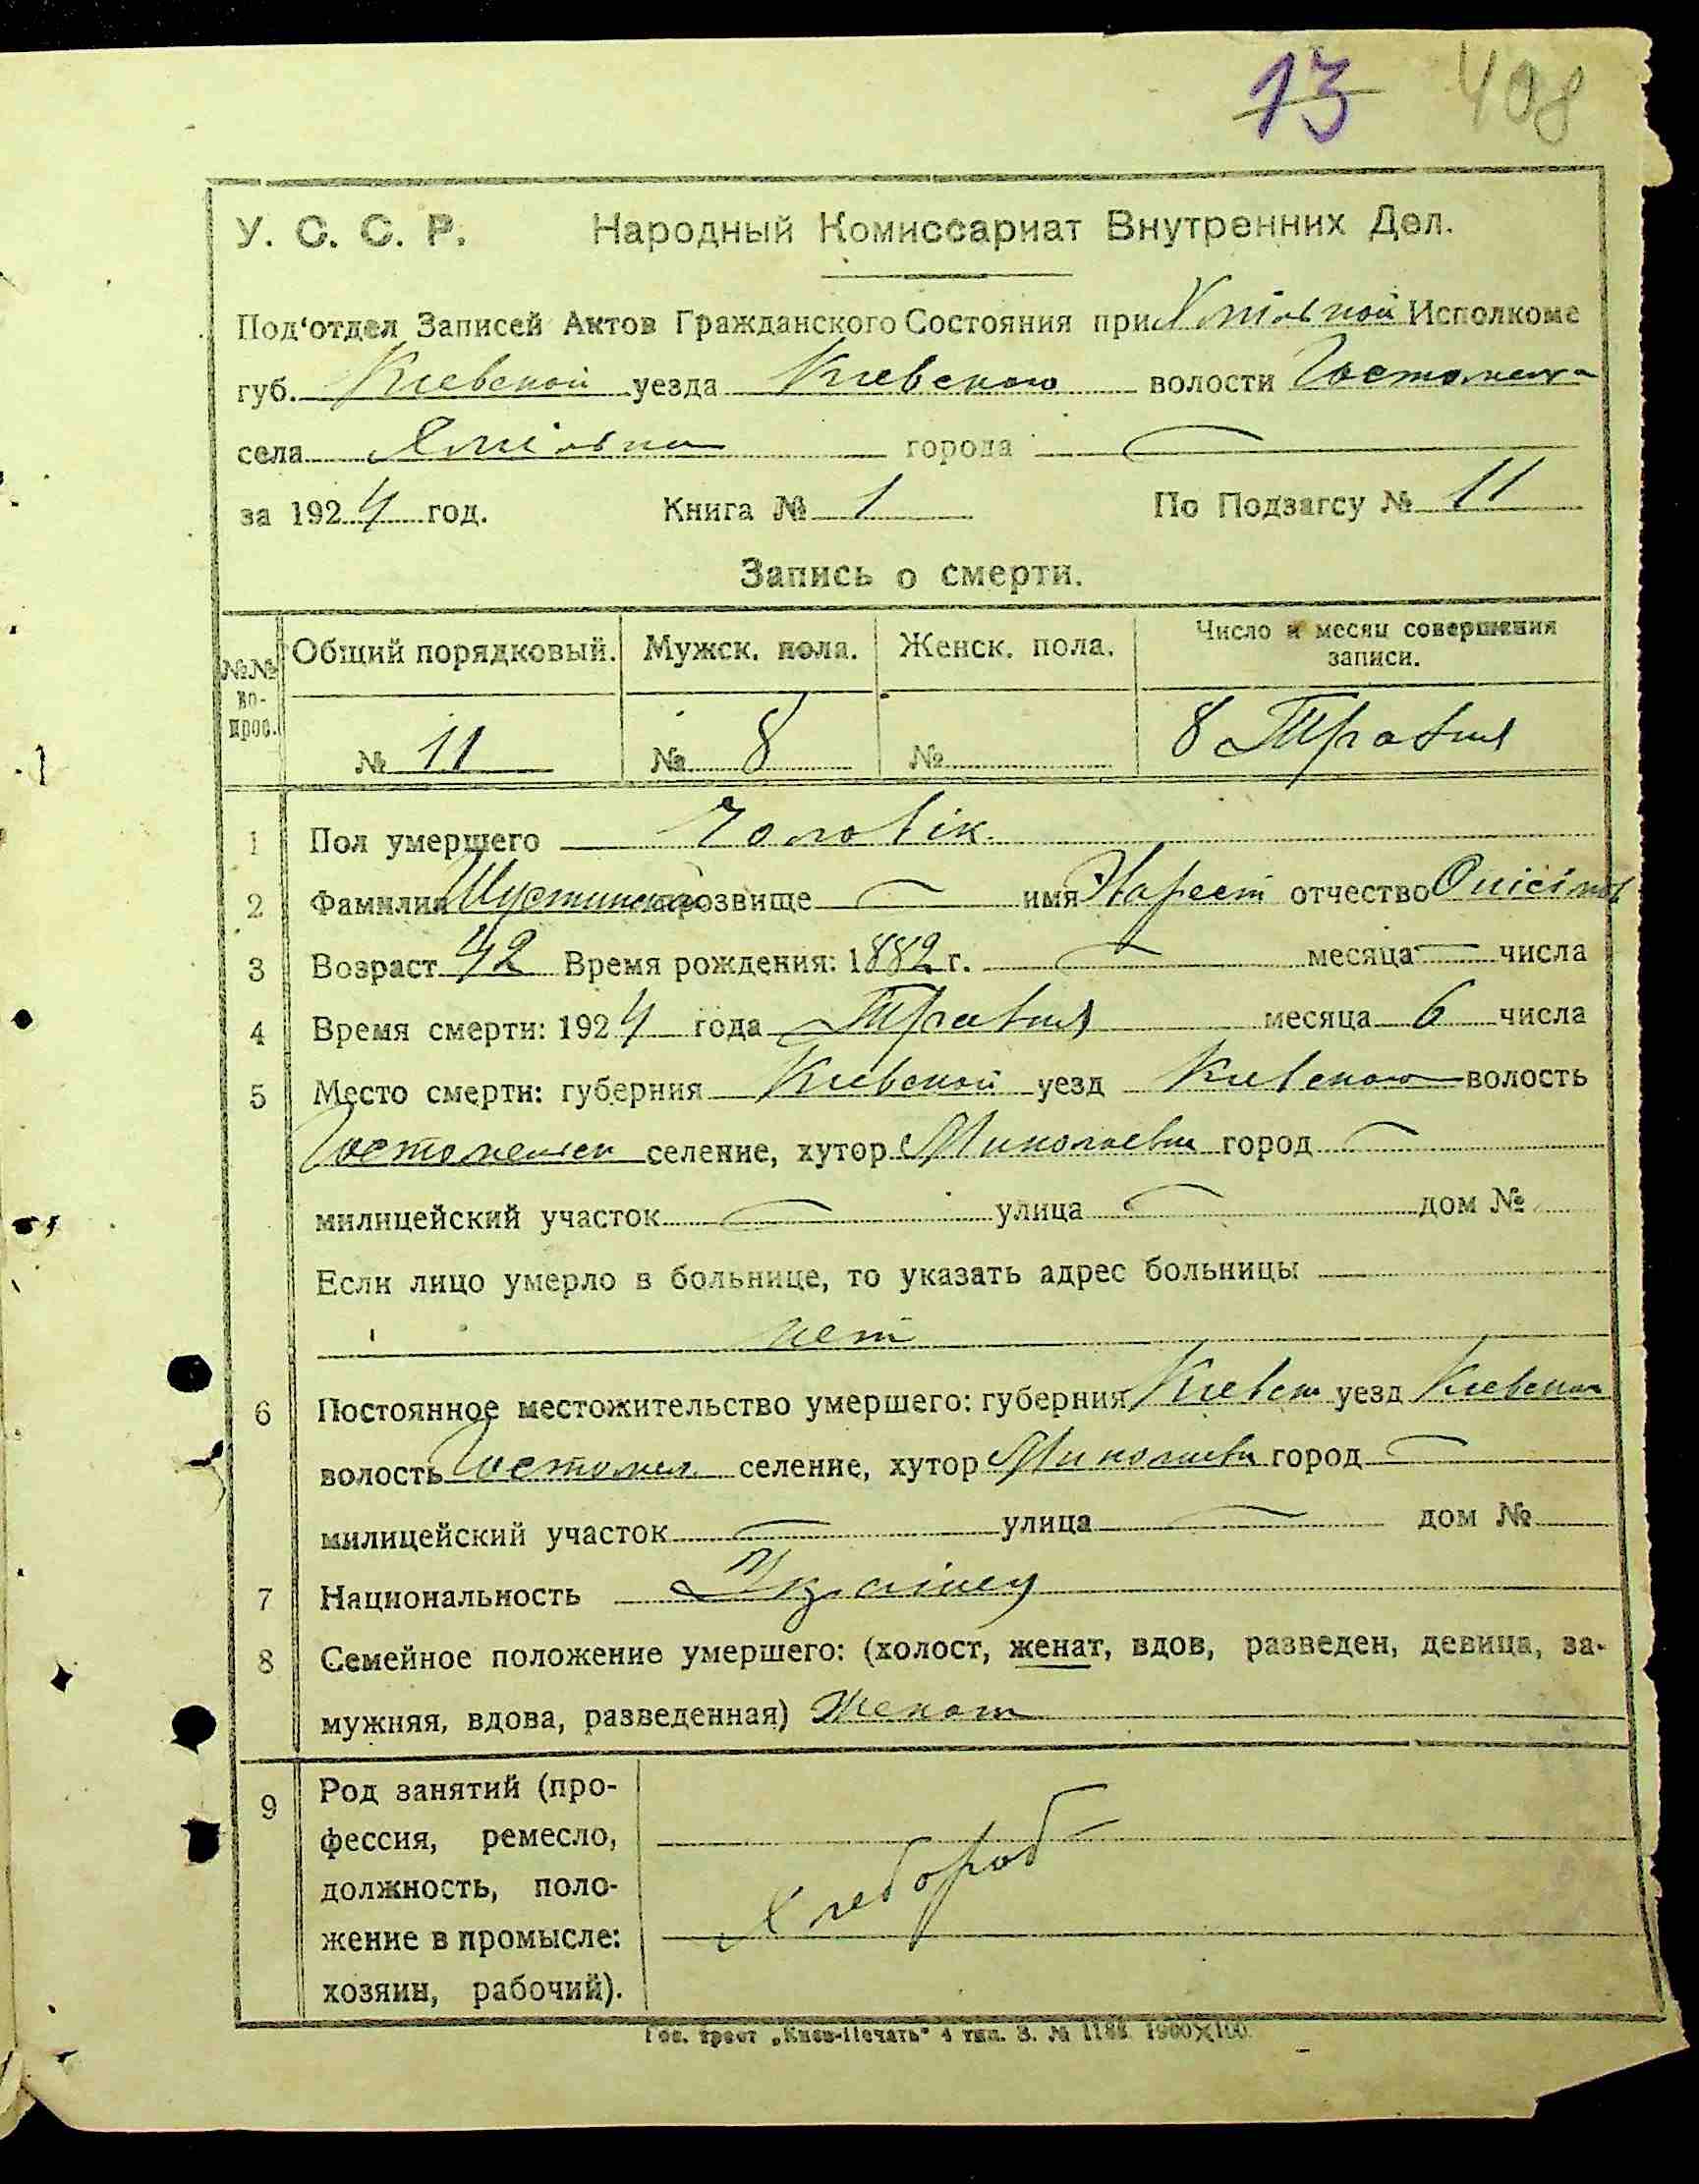 13 408
У. С. С. Р. Народный Комиссариат Внутренних Дел.
Под'отдел Записей Актов Гражданского Состояния при Хмільной Исполкоме
губ. Киевской уезда Киевского волости Гостомельск
села города
за 1924 год. Книга № 1 По Подзагсу № 11
Запись о смерти.
№№ во-прос. Общий порядковый. Мужск. пола. Женск. пола. Число и месяц совершения записи.
№ 11 № 8 № 8 Травня
1 Пол умершего Чоловік
2 Фамилия прозвище имя отчество
3 Возраст 42 Время рождения: 1882 г. месяца числа
4 Время смерти: 1924 года Травня месяца 6 числа
5 Место смерти: губерния Киевской уезд Киевского волость
Гостомельск селение, хутор Миколаевка город
милицейский участок улица дом №
Если лицо умерло в больнице, то указать адрес больницы
нет
6 Постоянное местожительство умершего: губерния Киевск уезд Киевского
волость Гостомел селение, хутор Миколаевк город
милицейский участок улица дом №
7 Национальность Українец
8 Семейное положение умершего: (холост, женат, вдов, разведен, девица, за-
мужняя, вдова, разведенная) Женат
9 Род занятий (про-
фессия, ремесло,
должность, поло-
жение в промысле:
хозяин, рабочий).
Хлебороб
Гос. трест „Киев-Печать“ 4 тип. З. № 1100